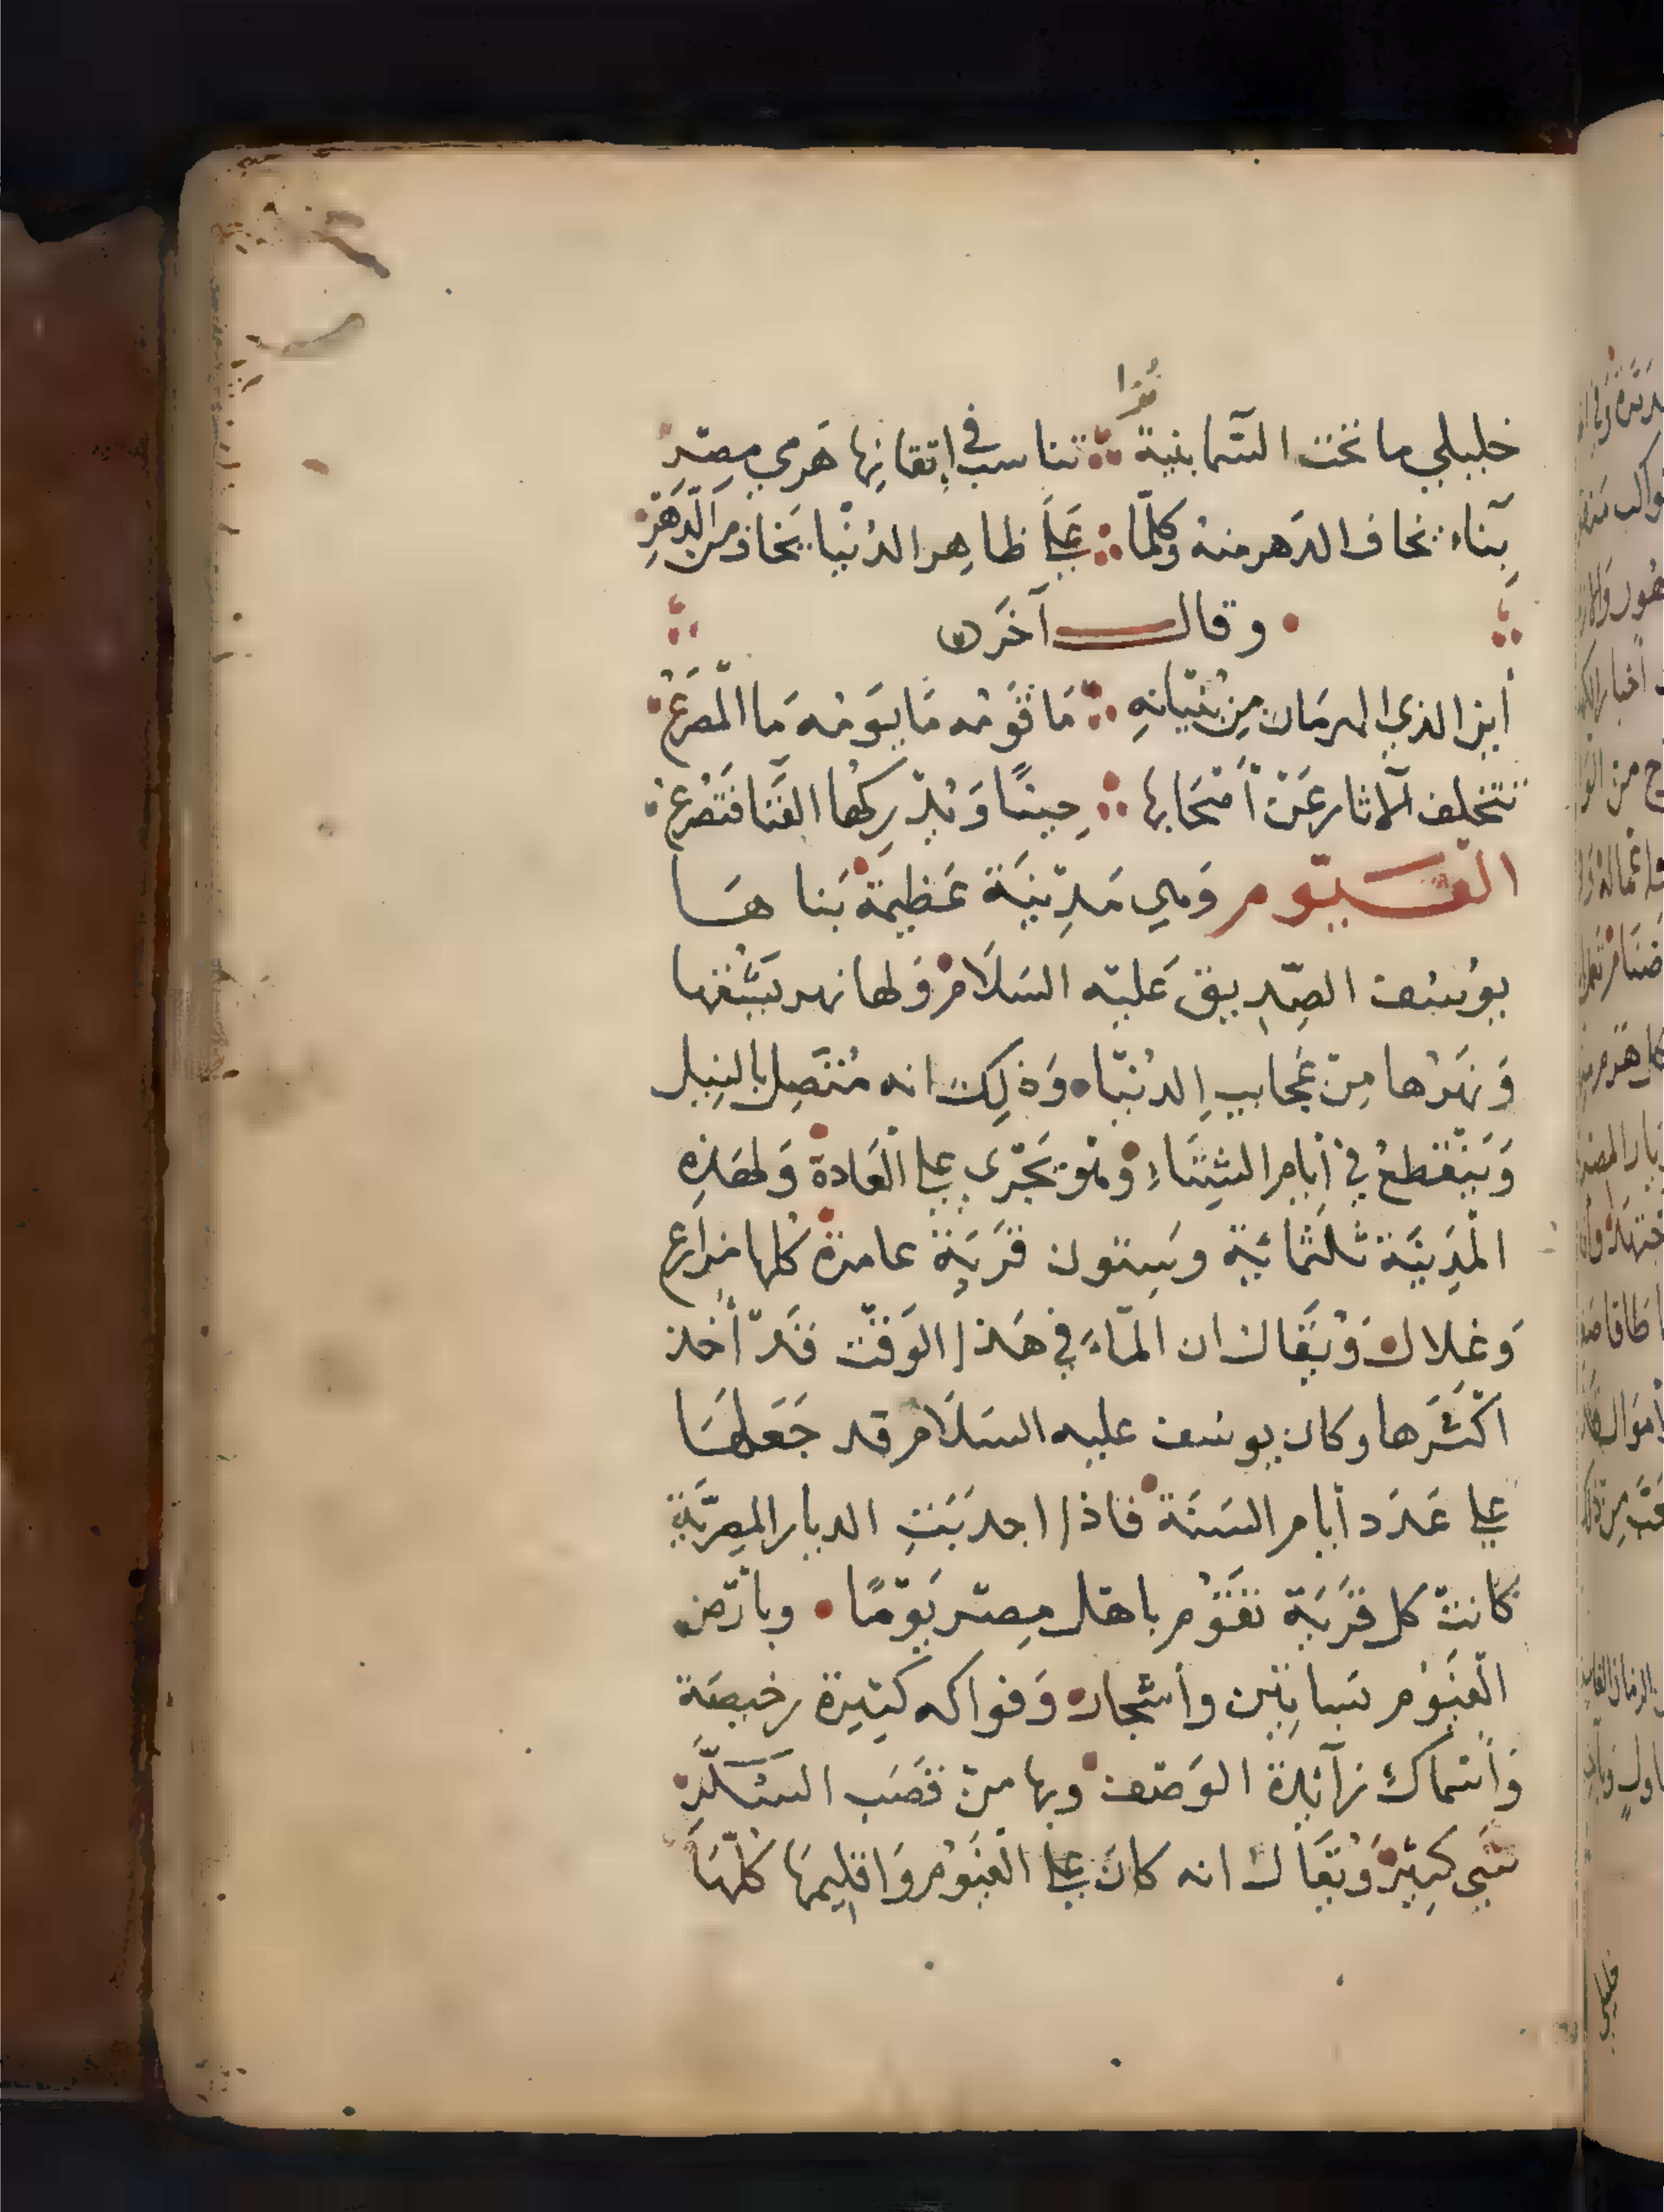 خليلي ما تحت السَّما بنية ∴ تناسب في إتقانِها هَرمي مِصْرِ
بِناء يخاف الدَهر منهُ وكلّما ∴ عَلَى ظاهِر الدُنْيا يَخاف من الدَّهْرِ
وقال آخَر
أين الذي الهرمَان مِن بُنْيانهِ ∴ مَا قَوْمُه مَا يَوْمُه مَا الْمصْرَعُ
تتخلف الآثار عَنْ أصْحَابِهَا ∴ حِينًا وَيُدْرِكُها الفَنَا فَتَصْرعُ
الْفَيّوم وَهي مَدِيْنَة عَظيمَة بَناها
يوُسُف الصِّدِيق عَليْه السَلَام وَلها نهر يَشُقها
وَنَهرُها مِنْ عَجايب الدُنْيا وَذلِك انه مُتَّصِل بالنِيل
وَيَنْقَطعُ فِي أيام الشِتَاءِ وَهُوَ يَجْرى على الْعَادة وَلهَذِهِ
الْمَدِيْنَة ثلثمائَة وسِتون قَرْيَة عامرة كُلها مزارع
وَغلال وَيُقَال ان المآءَ فِي هَذا الوَقْت قَدْ أخَذ
اكْثَرها وكان يوسُف عليه السَلَام قد جَعَلهَا
على عَدَد أيام السَنَة فاذا اجدَبَتِ الديار المِصريَّة
كانتْ كل قَرْيَة تَقوْم باهْل مِصْر يَوْمًا وبأرْض
الْفَيَوُم بَسَاتِين وأشْجار وَفواكه كَثِيرة رخيصَة
وَأَسْمَاك زآئدة الوَصْف وبها مِنْ قصَب السُكَّرِ
شَيْ كَثِيْر وَيُقَال انه كان على الْفَيَوُم وَاقلِيمِهَا كُلّهَا